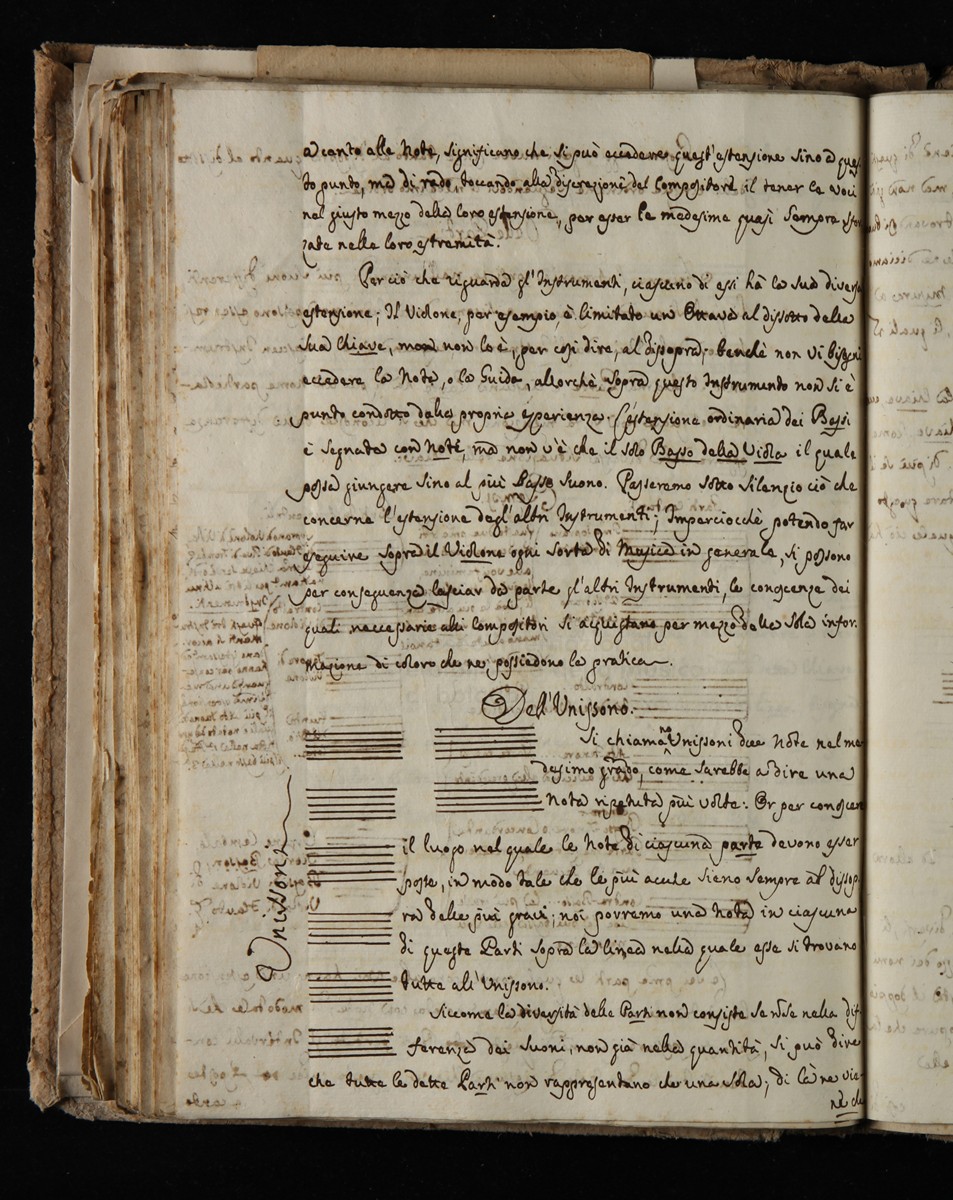 a canto alle Note, significano che si può eccedere quest'estensione sino a ques
to punto, ma di rado, toccando alla discrezione del Compositore il tener le voci
nel giusto mezzo della loro estensione, per esser le medesime quasi sempre sfor
zate nelle loro estremità.
Per ciò che riguarda gl'Instrumenti, ciascuno di essi hà la sua diversa
estensione; Il Violone, per esempio, è limitato un Ottava al dissotto della
sua Chiave, non lo è, per così dire, al dissopra; benchè non vi bisogni
eccedere la Note, o la Guida, allorchè sopra questo Instrumento non si è
punto condotto dalla propria esperienza. L'estensione ordinaria dei Bassi
è segnata con Note, ma non v'è che il solo Basso della Viola il quale
possa giungere sino al più Basso Suono. Passeremo sotto silenzio ciò che
concerne l'estensione degl'altri Instrumenti; Imperciocchè potendo far
eseguire sopra il Violone ogni sorta di Musica in generale, si possono
per conseguenza lasciar da parte gl'altri Instrumenti, le conoscenze dei
quali necessarie alli Compositori si acquistano per mezzo della sola infor.
mazione di coloro che ne possiedono la pratica.
Dell'Unissono.
Si chiamano Unissoni due Note nel me
desimo grado, come sarebbe a dire una
Nota ripetuta più volte. Or per conoscer
Unissoni
il luogo nel quale le Note di ciascuna parte devono esser
poste, in modo tale che le più acute sieno sempre al dissop
ra delle più gravi; noi porremo una Nota in ciascuna
di queste Parti sopra la linea nella quale esse si trovano
tutte all'Unissono.
Siccome la diversità delle Parti non consiste se n̄ nella dif
ferenza dei Suoni, non già nella quantità, si può dire
che tutte le dette Parti non rappresentano che una sola; di là ne vie-
ne che